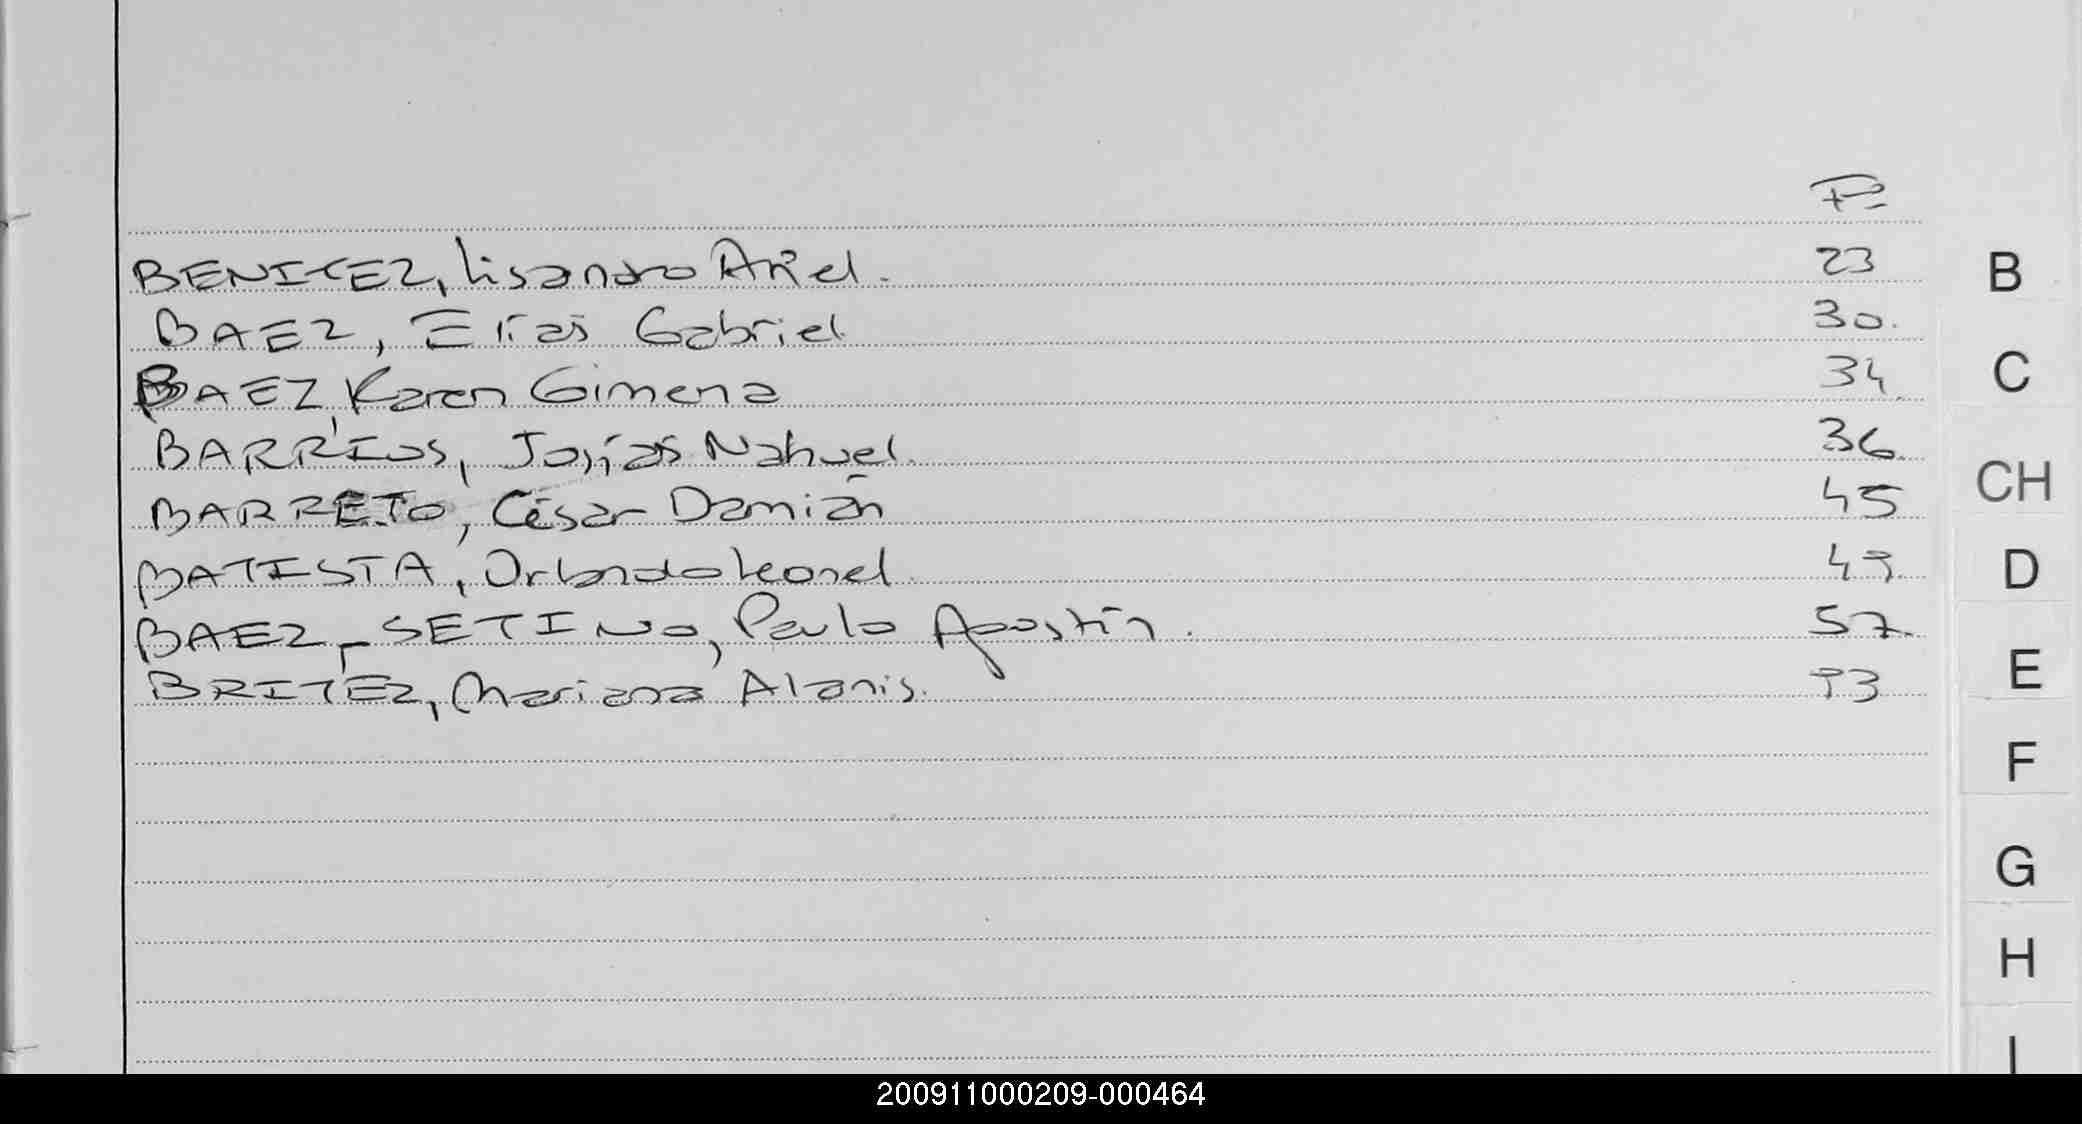 Fº
BENITEZ, Lisandro Ariel. 23
BAEZ, Elías Gabriel 30.
BAEZ, Karen Gimena 34
BARRIOS, Josías Nahuel. 36
BARRETO, César Damián 45
BATISTA, Orlando Leonel 49
BAEZ SETINO, Paulo Agostín. 57.
BRITEZ, Mariana Alanis. 73
B
C
CH
D
E
F
G
H
I
200911000209-000464